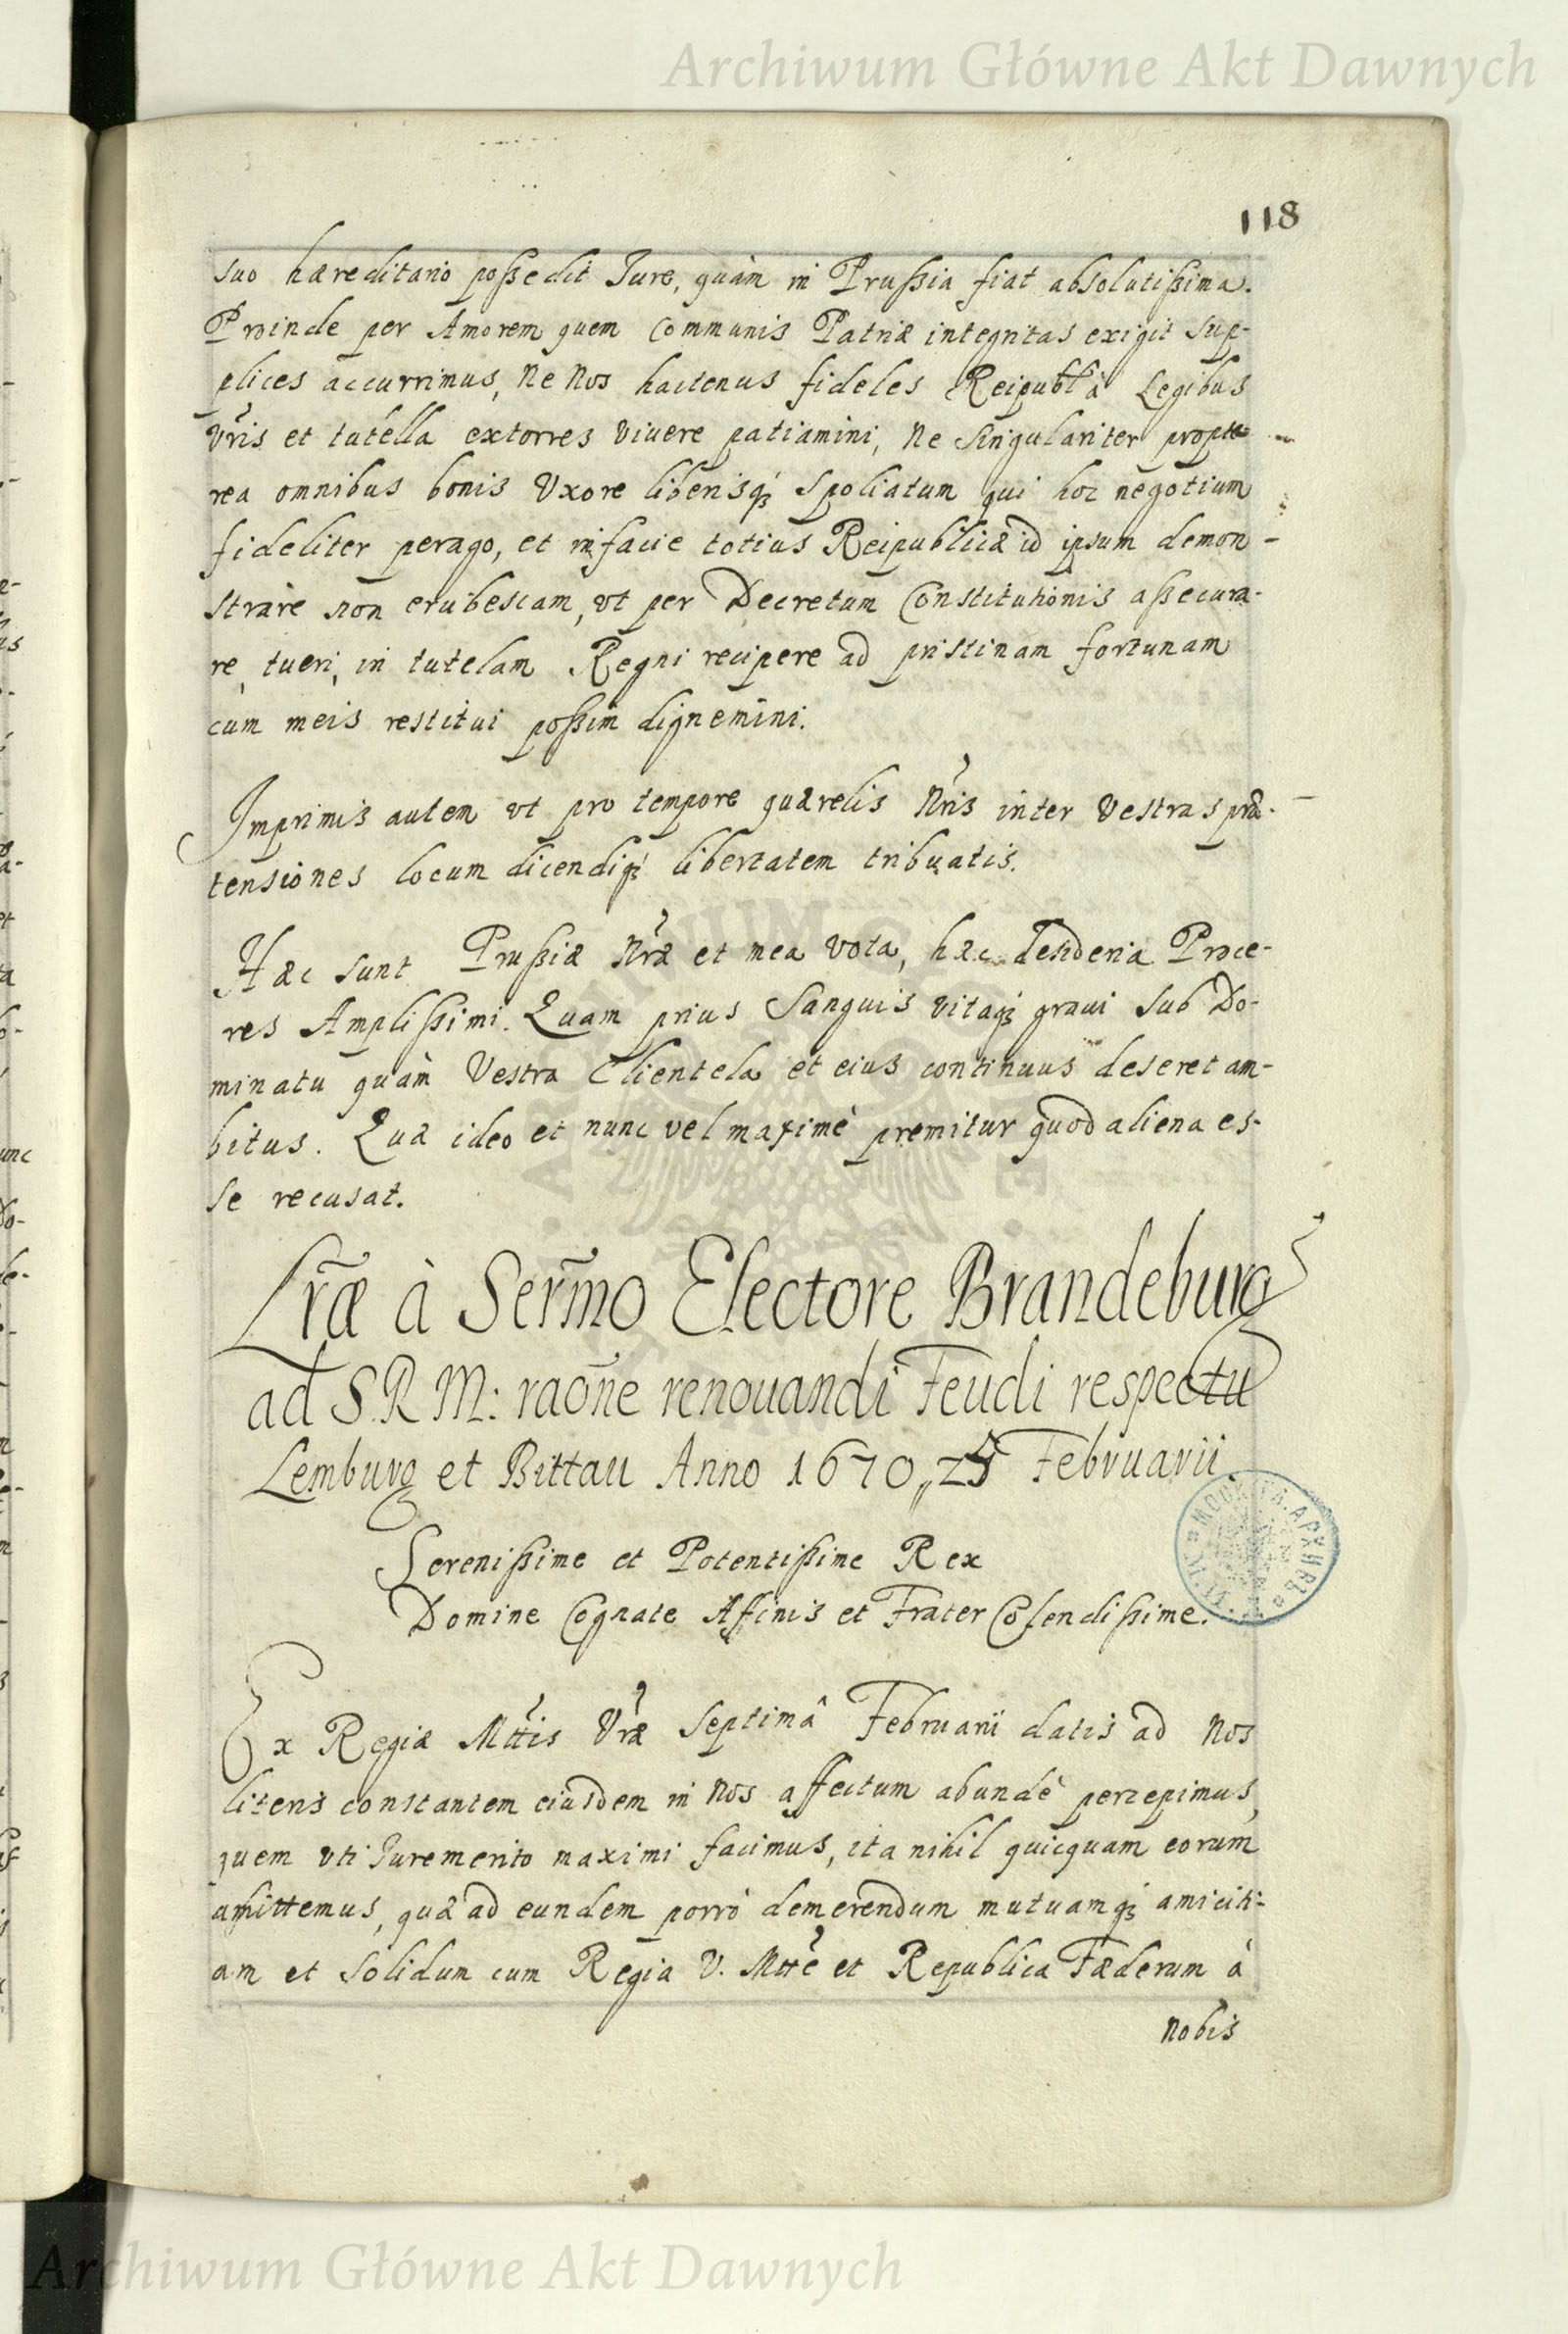 Archiwum Główne Akt Dawnych
118
suo hæreditario poßedit Jure, quàm in Prußia fiat absolutißima.
Proinde per Amorem quem Communis Patriæ integritas exigit sup-
plices accurrimus, ne nos hactenus fideles Reipublā Legibus
Vris et tutella extorres viuere patiamini, ne singulariter propte
rea omnibus bonis Vxore liberisq; spoliatum qui hoc negotium
fideliter perago, et in facie totius Reipublicæ id ipsum demon-
strare non erubescam, vt per Decretum Constitutionis aßecura-
re, tueri, in tutelam Regni recipere ad pristinam fortunam
cum meis restitui poßim dignemini.
Imprimis autem vt pro tempore quærelis Nris inter Vestras præ-
tensiones locum dicendiq; libertatem tribuatis.
Hæc sunt Prußiæ Nræ et mea vota, hæc desideria Proce-
res Amplißimi. Quam prius Sanguis vitaq; graui sub Do-
minatu quàm Vestra Clientela et eius continuus deseret am-
bitus. Quæ ideo et nunc vel maximè premitur quod aliena es-
se recusat.
Lræ à Sermo Electore Brandeburg
ad S. R M: raōne renouandi Feudi respectu
Lemburg et Bittau Anno 1670,, 25 Februarii.
Serenißime et Potentißime Rex
Domine Cognate Affinis et Frater Colendißime.
Ex Regiæ Mttis Vræ septimâ Februarii datis ad nos
literis constantem eiusdem in nos affectum abundè percepimus,
quem vti Jure merito maximi facimus, ita nihil quicquam eorum
omittemus, quæ ad eundem porrò demerendum mutuamq; amiciti-
am et solidum cum Regia V. Mtte et Republica Fæderum à
nobis
Archiwum Główne Akt Dawnych